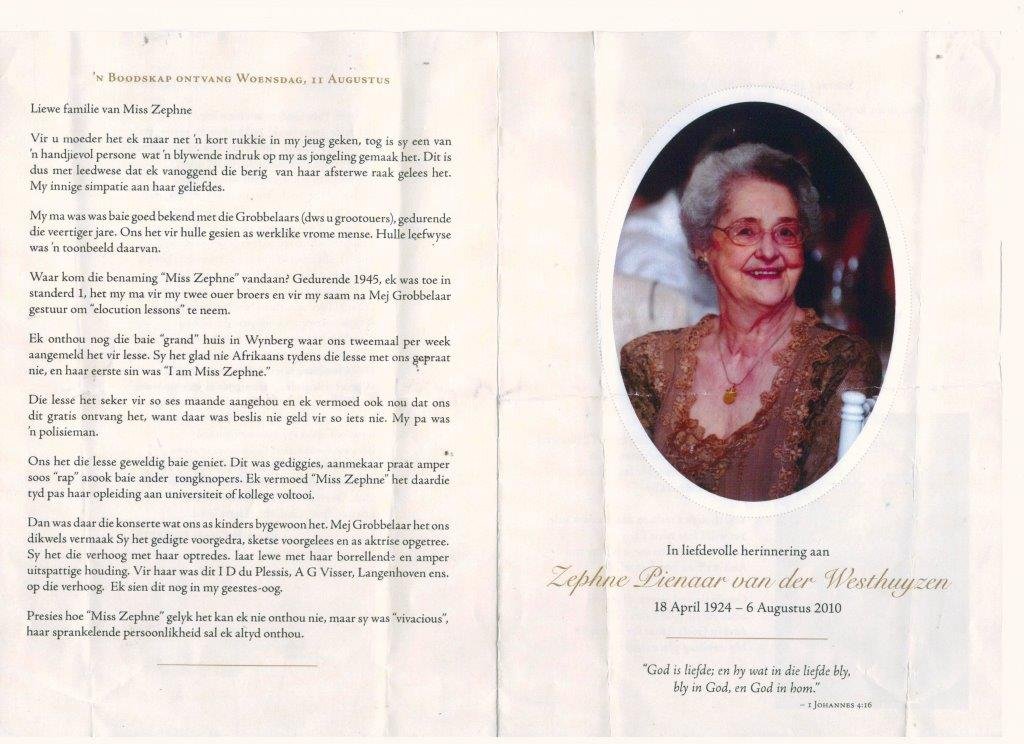 'n Boodskap ontvang Woensdag, 11 Augustus
Liewe familie van Miss Zephne
Vir u moeder het ek maar net 'n kort rukkie in my jeug geken, tog is sy een van
'n handjievol persone wat 'n blywende indruk op my as jongeling gemaak het. Dit is
dus met leedwese dat ek vanoggend die berig van haar afsterwe raak gelees het.
My innige simpatie aan haar geliefdes.
My ma was was baie goed bekend met die Grobbelaars (dws u grootouers), gedurende
die veertiger jare. Ons het vir hulle gesien as werklike vrome mense. Hulle leefwyse
was 'n toonbeeld daarvan.
Waar kom die benaming "Miss Zephne" vandaan? Gedurende 1945, ek was toe in
standerd 1, het my ma vir my twee ouer broers en vir my saam na Mej Grobbelaar
gestuur om "elocution lessons" te neem.
Ek onthou nog die baie "grand" huis in Wynberg waar ons tweemaal per week
aangemeld het vir lesse. Sy het glad nie Afrikaans tydens die lesse met ons gepraat
nie, en haar eerste sin was "I am Miss Zephne."
Die lesse het seker vir so ses maande aangehou en ek vermoed ook nou dat ons
dit gratis ontvang het, want daar was beslis nie geld vir so iets nie. My pa was
'n polisieman.
Ons het die lesse geweldig baie geniet. Dit was gediggies, aanmekaar praat amper
soos "rap" asook baie ander tongknopers. Ek vermoed "Miss Zephne" het daardie
tyd pas haar opleiding aan universiteit of kollege voltooi.
Dan was daar die konserte wat ons as kinders bygewoon het. Mej Grobbelaar het ons
dikwels vermaak Sy het gedigte voorgedra, sketse voorgelees en as aktrise opgetree.
Sy het die verhoog met haar optredes. laat lewe met haar borrellende en amper
uitspattige houding. Vir haar was dit I D du Plessis, A G Visser, Langenhoven ens.
op die verhoog. Ek sien dit nog in my geestes-oog.
Presies hoe "Miss Zephne" gelyk het kan ek nie onthou nie, maar sy was "vivacious",
haar sprankelende persoonlikheid sal ek altyd onthou.
In liefdevolle herinnering aan
Zephne Pienaar van der Westhuyzen
18 April 1924 – 6 Augustus 2010
"God is liefde; en hy wat in die liefde bly,
bly in God, en God in hom."
– 1 Johannes 4:16